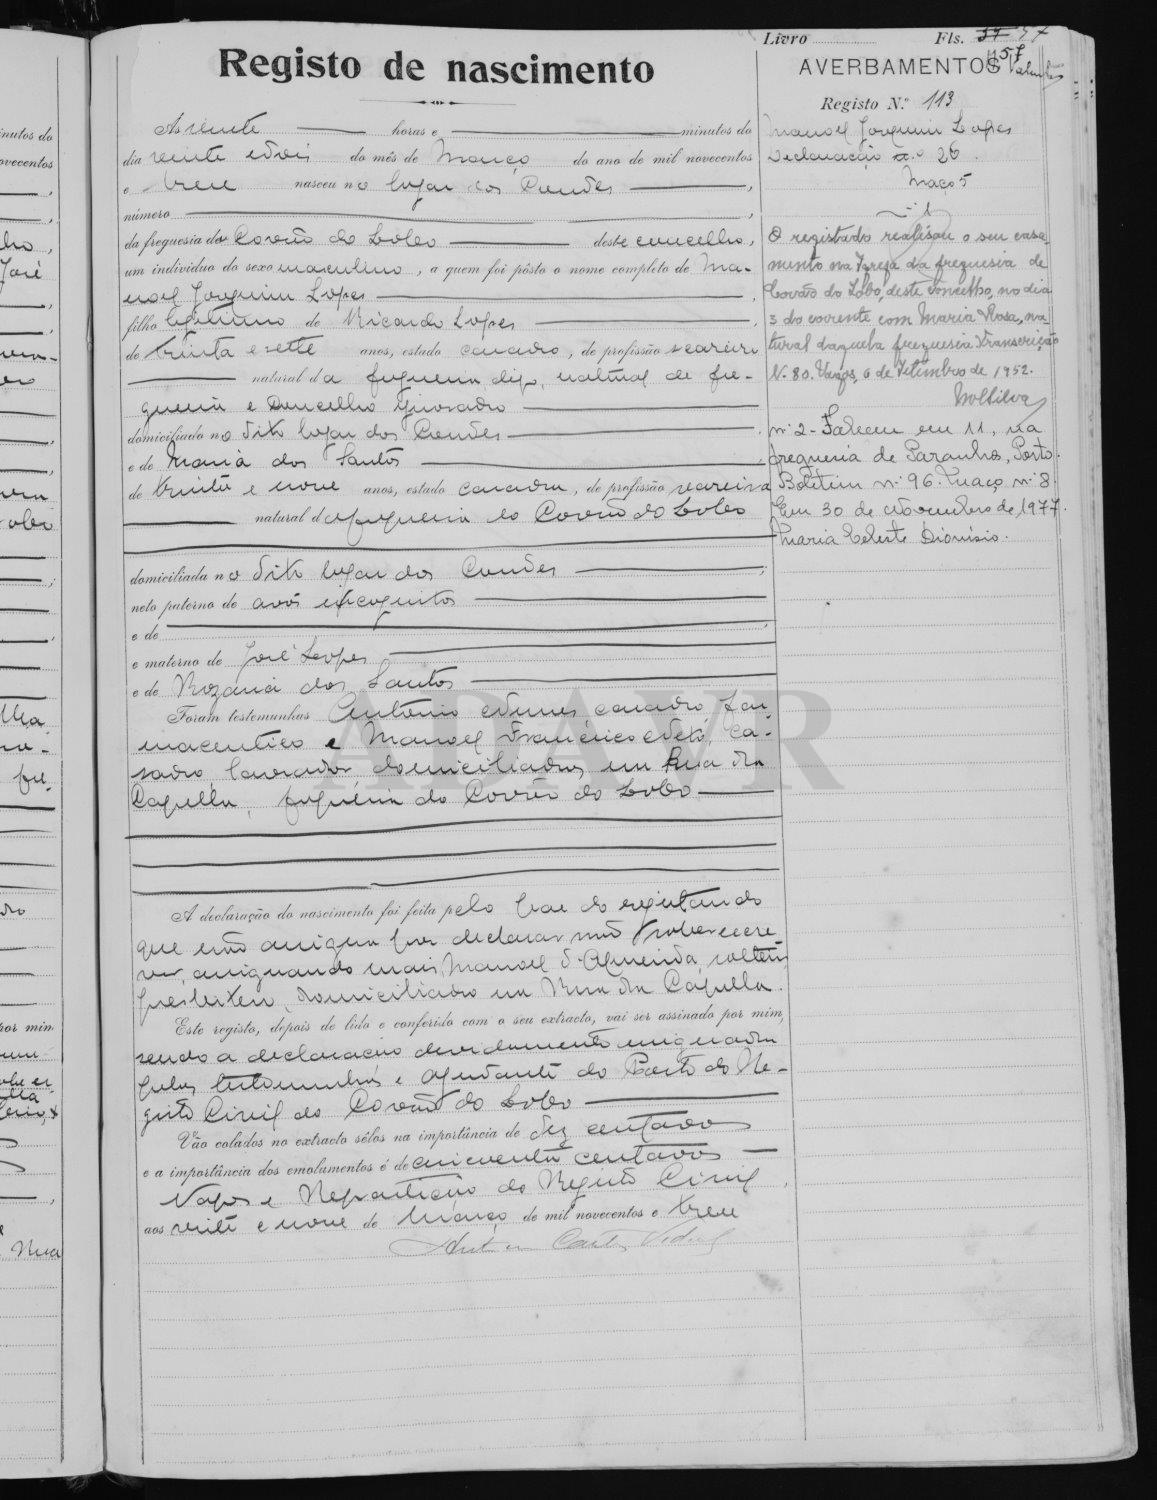 Livro Fls. 37 57
Registo de nascimento
AVERBAMENTOS
Registo N.º 113
As vinte horas e minutos do
dia vinte e dois do mês de Março do ano de mil novecentos
e treze nasceu no lugar dos Condes ,
número ,
da freguesia do Covão do Lobo deste concelho,
um indivíduo do sexo masculino, a quem foi pôsto o nome completo de Ma-
noel Joaquim Lopes ,
filho legitimo de Ricardo Lopes ,
de trinta e sette anos, estado casado, de profissão seareiro
natural da freguesia digo, natural de fre-
guesia e Concelho
domiciliado no dito lugar dos Condes ,
e de Maria dos Santos ,
de trinta e nove anos, estado casada, de profissão seareira
natural da freguesia do Covão do Lobo
domiciliada no dito lugar dos Condes ;
neto paterno de avós incognitos
e de ,
e materno de José Lopes
e de Rozaria dos Santos
Foram testemunhas Antonio Nunes casado, far-
maceutico e Manoel Francisco Neto, ca-
sado, lavrador, domiciliados na Rua da
Capella, freguesia do Covão do Lobo
A declaração do nascimento foi feita pelo pae do registando
que não assigna por declarar não saber escre-
ver, assignando mais Manoel d'Almeida, solteiro,
presbitero, domiciliado na Rua da Capella.
Este registo, depois de lido e conferido com o seu extracto, vai ser assinado por mim,
sendo a declaração devidamente assignada
pelas testemunhas e ajudante do Posto do Re-
gisto Civil do Covão do Lobo
Vão colados no extracto sêlos na importância de dez centavos
e a importância dos emolumentos é de cincoenta centavos
Vagos e Repartição do Registo Civil,
aos vinte e nove de Março de mil novecentos e treze
Manoel Joaquim Lopes
Declaração n.º 26
Maço 5
n.º 1
O registado realisou o seu casa-
mento na Igreja da freguesia de
Covão do Lobo, deste concelho, no dia
3 do corrente com Maria Rosa, na-
tural daquela freguesia. Transcrição
N.º 80. Vagos, 6 de Setembro de 1952.
n.º 2 - Faleceu em 11, na
freguesia de Paranhos, Porto.
Boletim n.º 96. Maço n.º 8.
Em 30 de Novembro de 1977.
Maria Celeste Dionísio.
ADAVR